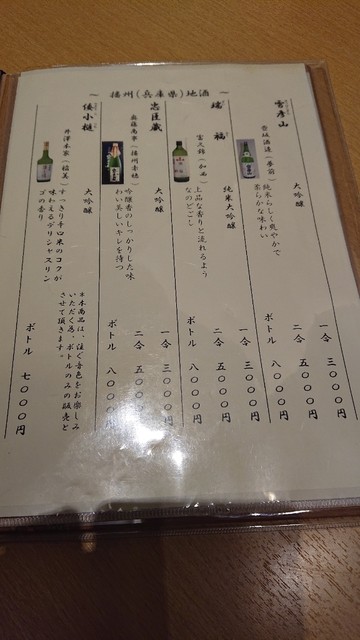 ～ 播州(兵庫県)地酒 ～
雪彦山
壺坂酒造(夢前)
純米らしく爽やかで
柔らかな味わい
大吟醸
一合 三〇〇〇円
二合 五〇〇〇円
ボトル 八〇〇〇円
瑞福
富久錦(加西)
上品な香りと流れるよう
なのどごし
純米大吟醸
一合 三〇〇〇円
二合 五〇〇〇円
ボトル 八〇〇〇円
忠臣蔵
奥藤商事(播州赤穂)
吟醸香のしっかりした味
わい美しいキレを持つ
大吟醸
一合 三〇〇〇円
二合 五〇〇〇円
ボトル 八〇〇〇円
倭小槌
井澤本家(稲美)
すっきり辛口米のコクが
味わえるデリシャスリン
ゴの香り
大吟醸
※本商品は、注ぐ音色をお楽しみ
いただく為、ボトルのみの販売と
させて頂きます。
ボトル 七〇〇〇円